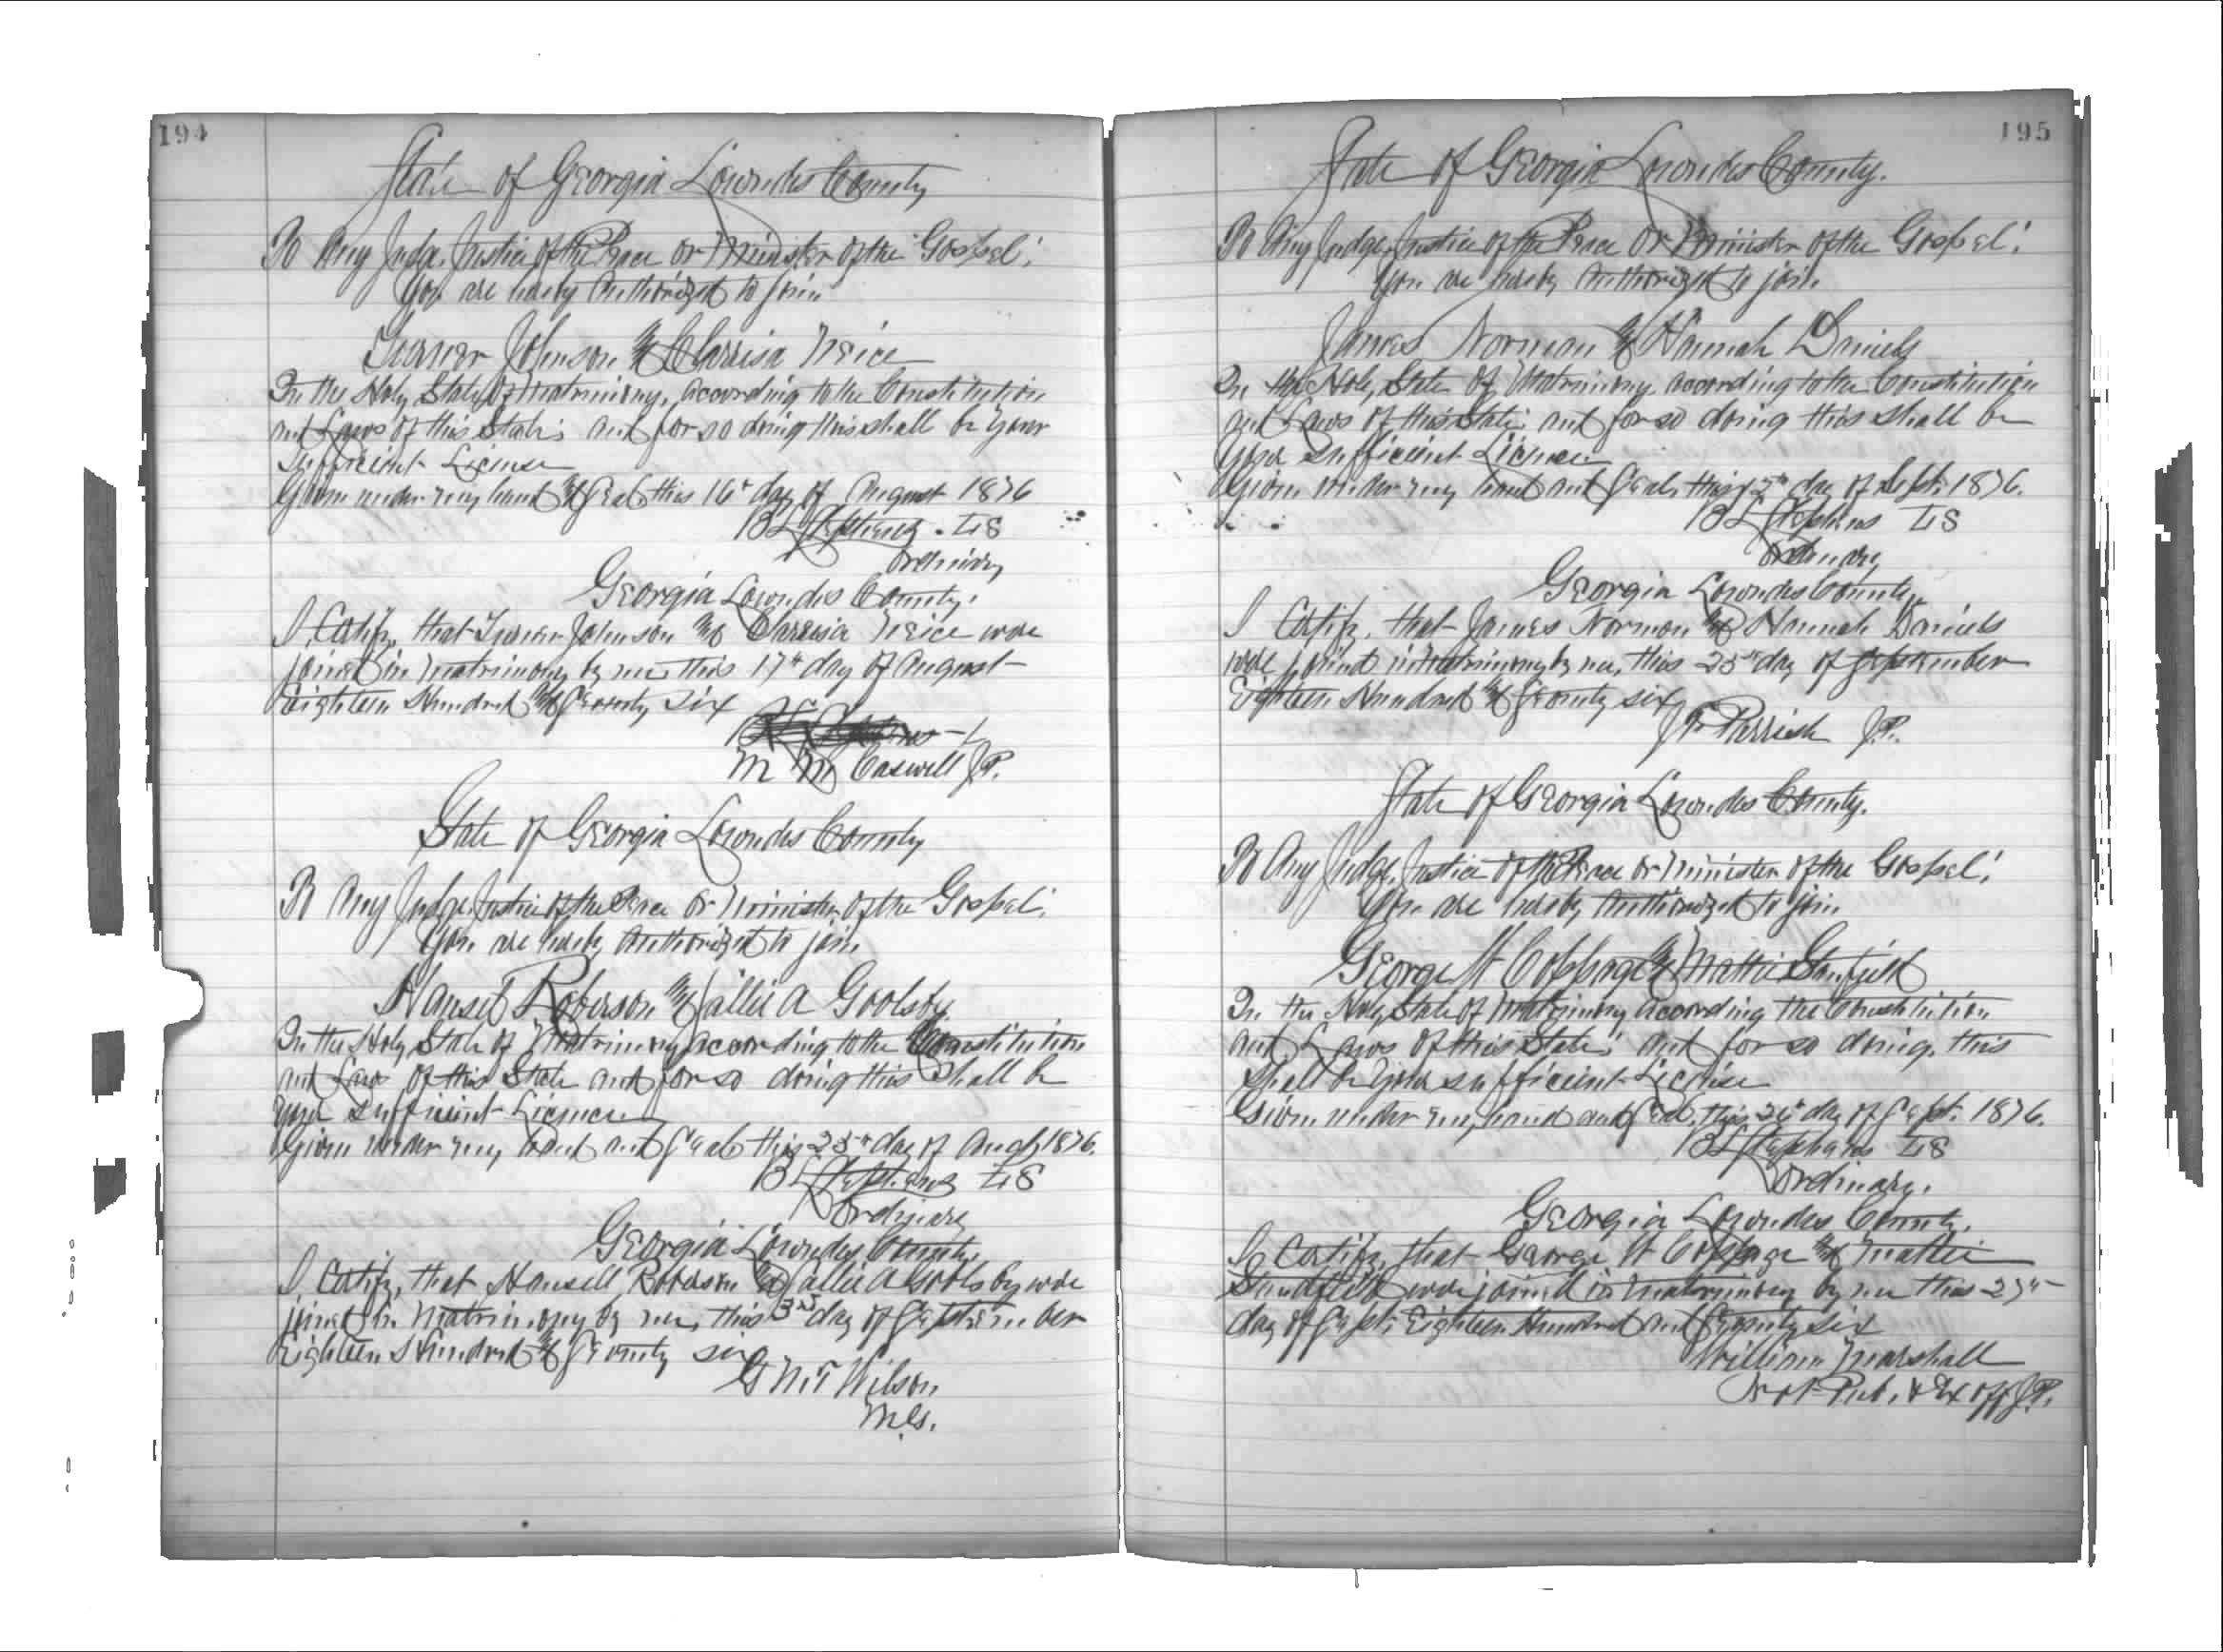 194
State of Georgia Lowndes County
To Any Judge, Justice of the Peace or Minister of the Gospel;
You are hereby Authorized to join
Turner Johnson & Clarrisa Neice
In the Holy State of Matrimony, according to the Constitution
and Laws of this State; and for so doing this shall be your
sufficient License
Given under my hand & Seal this 16th day of August 1876
B L Stephens. LS
Ordinary
Georgia Lowndes County.
I Certify, that Turner Johnson & Clarrisa Neice were
joined in Matrimony by me this 17th day of August
Eighteen Hundred & Seventy six
M M Caswell J.P.
State of Georgia Lowndes County
To Any Judge, Justice of the Peace Or Minister of the Gospel;
You are hereby Authorized to join
Hansel Roberson & Callie A Goolsby
In the Holy State of Matrimony according to the Constitution
and Laws of this State and for so doing this shall be
your sufficient License
Given under my hand and Seal this 25th day of Aug 1876.
B L Stephens LS
Ordinary
Georgia Lowndes County.
I Certify, that Hansell Roberson & Callie A Goolsby were
joined in Matrimony by me, this 3rd day of September
Eighteen Hundred & Seventy six
Wilson
M.G.
195
State of Georgia Lowndes County.
To Any Judge, Justice of the Peace Or Minister of the Gospel;
You are hereby Authorized to join
James Norman & Hannah Daniels
In the Holy State of Matrimony according to the Constitution
and Laws of this State; and for so doing this shall be
your sufficient License
Given under my hand and Seal, this day of Sept. 1876.
B L Stephens LS
Ordinary
Georgia Lowndes County
I Certify, that James Norman & Hannah Daniels
were joined in Matrimony by me, this 25th day of September
Eighteen Hundred & Seventy six
Parrish J.P.
State of Georgia Lowndes County.
To Any Judge, Justice of the Peace Or Minister of the Gospel;
You are hereby Authorized to join
George W Coppage & Mattie Stanfield
In the Holy State of Matrimony according the Constitution
and Laws of this State; and for so doing, this
shall be your sufficient License
Given under my hand and Seal, this day of Sept. 1876.
B L Stephens LS
Ordinary.
Georgia Lowndes County.
I Certify, that George W Coppage & Mattie
were joined in Matrimony by me this 27th
day of Sept. Eighteen Hundred and Seventy six
William Marshall
Not. Pub. & Ex off J.P.